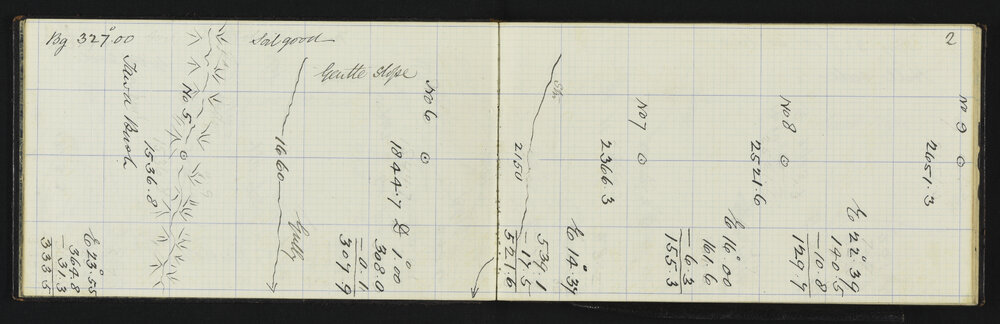 Bg 327°00
Soil good
Gentle slope
2
Tawa Bush
1536.8
E 23°55
364.8
– 31.3
333.5
No 5
1660
Gully
No 6
1844.7
D 1°00
308.0
– 0.1
307.9
2150
E 14°39
539.1
– 17.5
521.6
No 7
2366.3
E 16°00
161.6
– 6.3
155.3
No 8
2521.6
E 22°39
140.5
– 10.8
129.7
No 9
2651.3